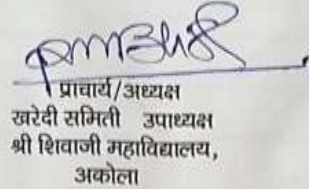 प्राचार्य/अध्यक्ष
खरेदी समिती उपाध्यक्ष
श्री शिवाजी महाविद्यालय,
अकोला